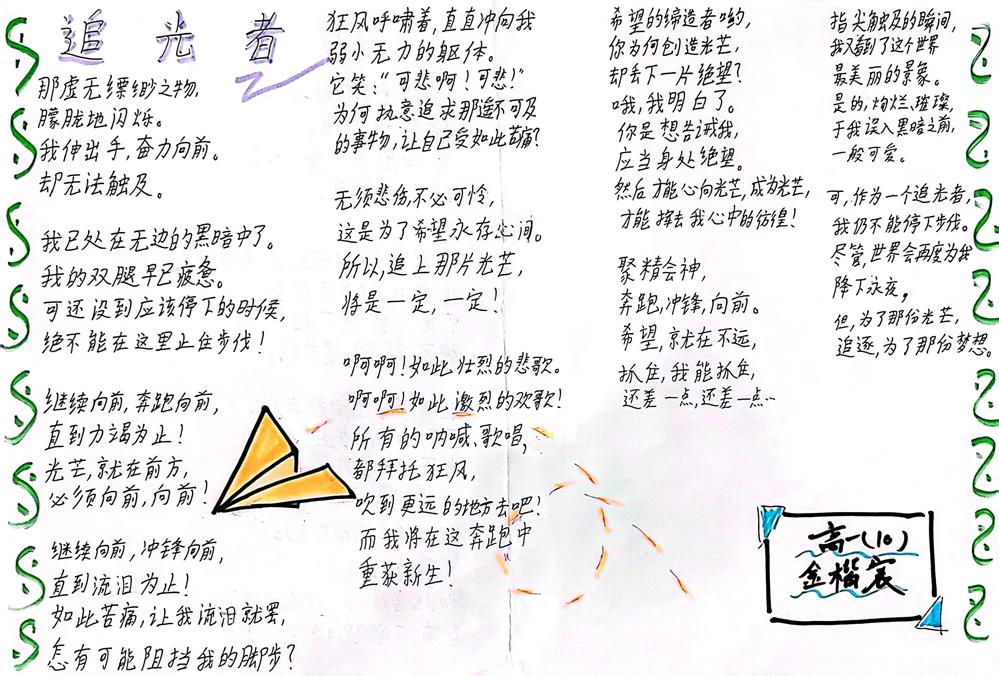 追光者
那虚无缥缈之物,
朦胧地闪烁。
我伸出手,奋力向前。
却无法触及。
我已处在无边的黑暗中了。
我的双腿早已疲惫。
可还没到应该停下的时候,
绝不能在这里止住步伐!
继续向前,奔跑向前,
直到力竭为止!
光芒,就在前方,
必须向前,向前!
继续向前,冲锋向前,
直到流泪为止!
如此苦痛,让我流泪就罢,
怎有可能阻挡我的脚步?
狂风呼啸着,直直冲向我
弱小无力的躯体。
它笑:“可悲啊!可悲!”
为何执意追求那遥不可及
的事物,让自己受如此苦痛?
无须悲伤,不必可怜,
这是为了希望永存心间。
所以,追上那片光芒,
将是一定,一定!
啊啊!如此壮烈的悲歌。
啊啊!如此激烈的欢歌!
所有的呐喊、歌唱,
都拜托狂风,
吹到更远的地方去吧!
而我将在这奔跑中
重获新生!
希望的缔造者哟,
你为何创造光芒,
却丢下一片绝望?
哦,我明白了。
你是想告诫我,
应当身处绝望。
然后才能心向光芒,成为光芒,
才能挥去我心中的彷徨!
聚精会神,
奔跑,冲锋,向前。
希望,就在不远,
抓住,我能抓住,
还差一点,还差一点…
指尖触及的瞬间,
我又看到了这个世界
最美丽的景象。
是的,灿烂、璀璨,
于我误入黑暗之前,
一般可爱。
可,作为一个追光者,
我仍不能停下步伐。
尽管,世界会再度为我
降下永夜,
但,为了那份光芒,
追逐,为了那份梦想。
高一(10)
金楷宸